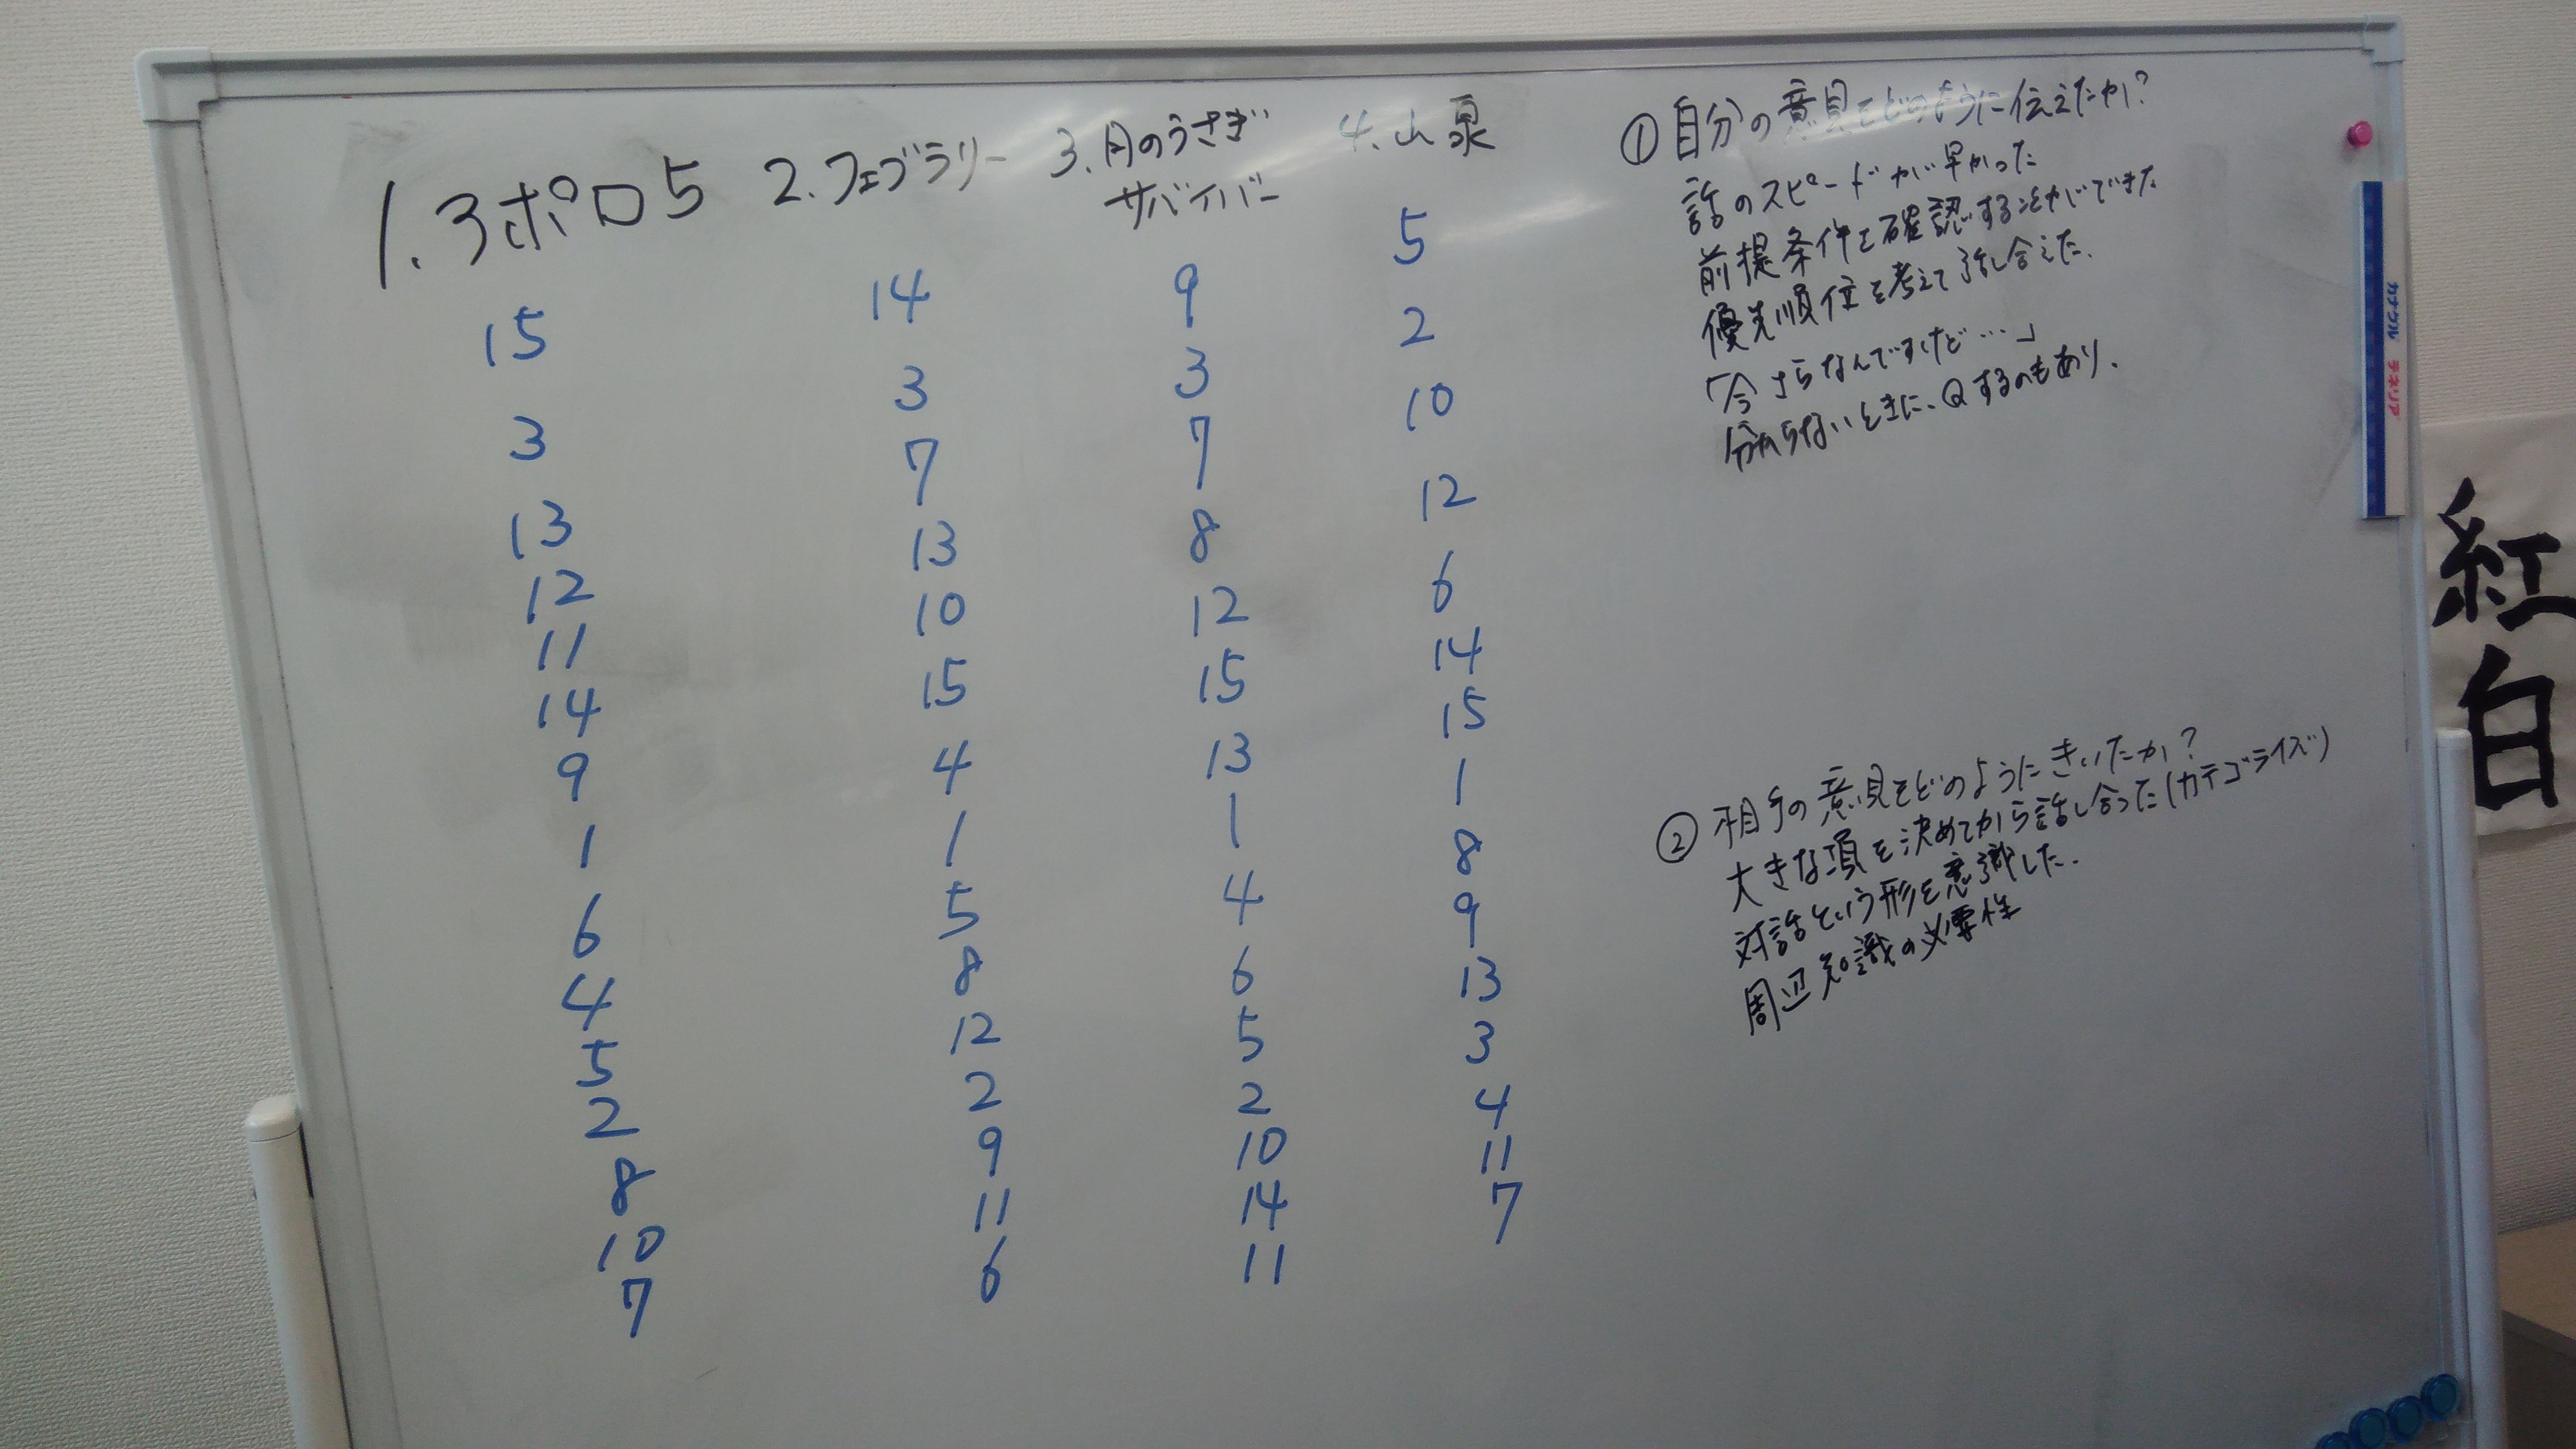 1. 3ポロ5
15
3
13
12
11
14
9
1
6
4
5
2
8
10
7
2. フェブラリー
14
3
7
13
10
15
4
1
5
8
12
2
9
11
6
3. 月のうさぎ
サバイバー
9
3
7
8
12
15
13
1
4
6
5
2
10
14
11
4. 山泉
5
2
10
12
6
14
15
1
8
9
13
3
4
11
7
① 自分の意見をどのように伝えたか?
話のスピードが早かった
前提条件を確認することができた
優先順位を考えて話し合えた.
「今さらなんですけど…」
分からないときに、Qするのもあり.
② 相手の意見をどのようにきいたか?
大きな項を決めてから話し合った(カテゴライズ)
対話という形を意識した.
周辺知識の必要性
紅白